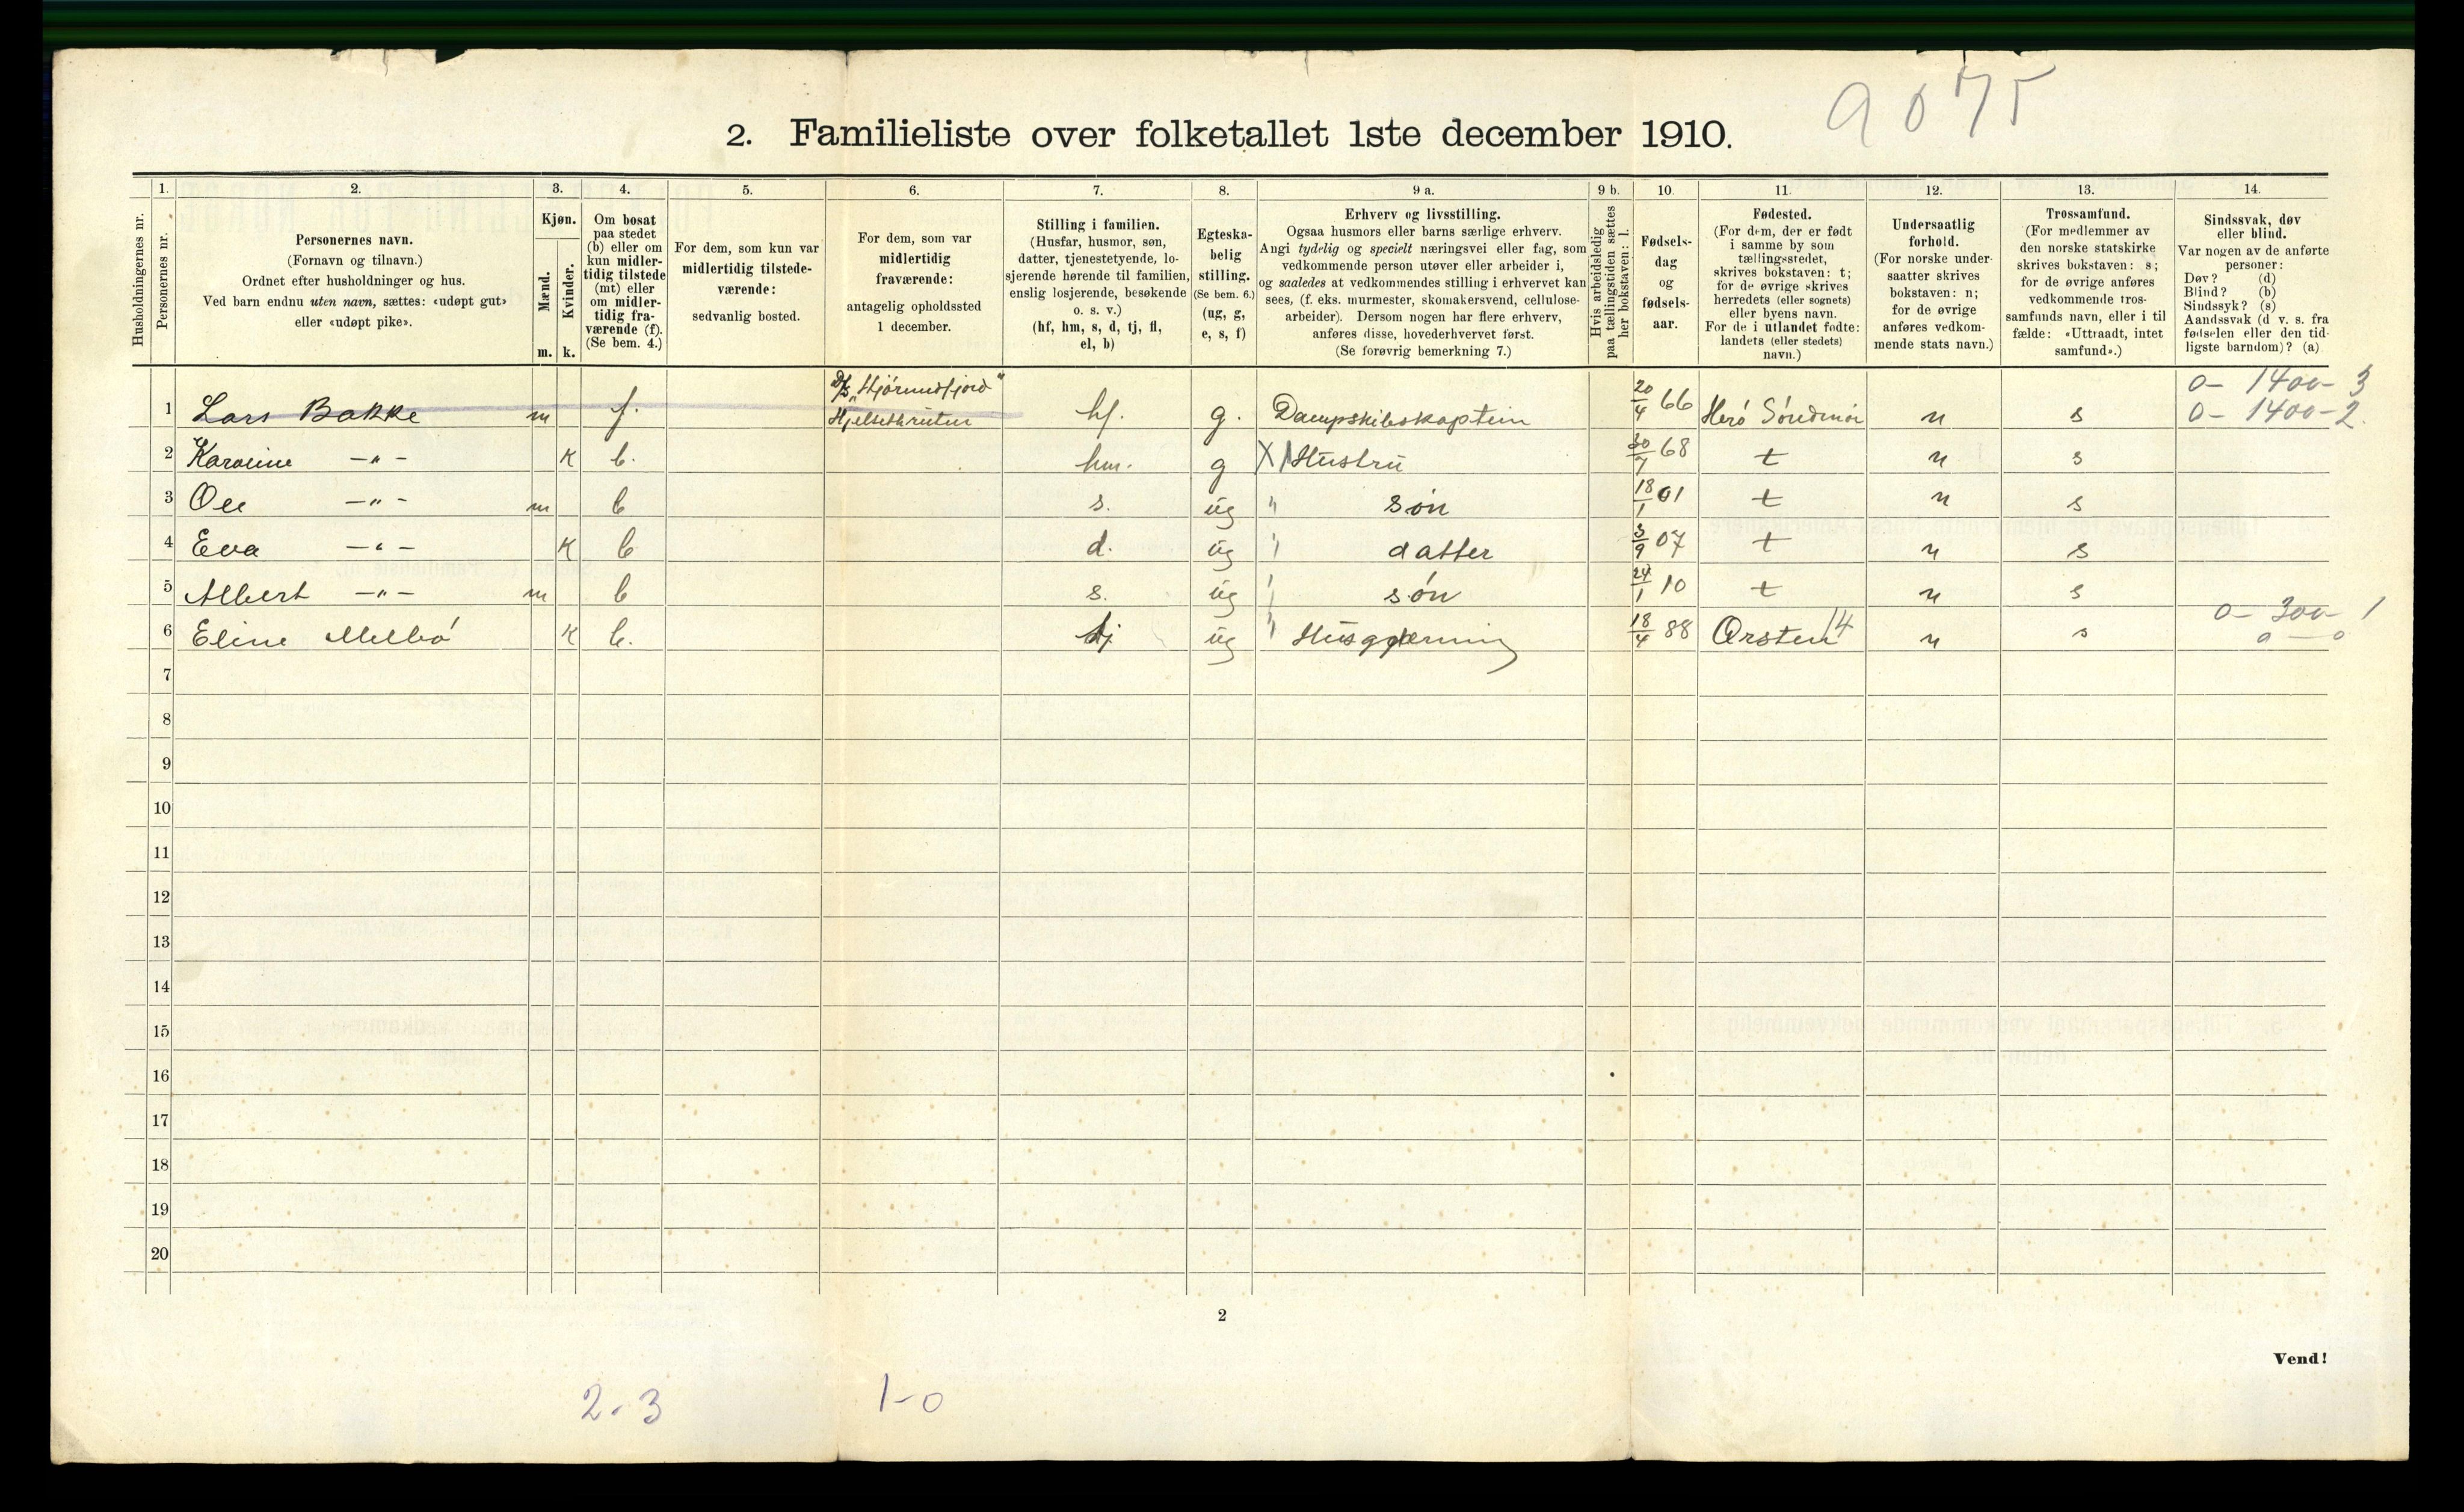 9075
2. Familieliste over folketallet 1ste december 1910.
Husholdningernes nr.
1.
Personernes nr.
2.
Personernes navn.
(Fornavn og tilnavn.)
Ordnet efter husholdninger og hus.
Ved barn endnu uten navn, sættes: «udøpt gut»
eller «udøpt pike».
3.
Kjøn.
Mænd.
m.
Kvinder.
k.
4.
Om bosat
paa stedet
(b) eller om
kun midler-
tidig tilstede
(mt) eller
om midler-
tidig fra-
værende (f).
(Se bem. 4.)
5.
For dem, som kun var
midlertidig tilstede-
værende:
sedvanlig bosted.
6.
For dem, som var
midlertidig
fraværende:
antagelig opholdssted
1 december.
7.
Stilling i familien.
(Husfar, husmor, søn,
datter, tjenestetyende, lo-
sjerende hørende til familien,
enslig losjerende, besøkende
o. s. v.)
(hf, hm, s, d, tj, fl,
el, b)
8.
Egteska-
belig
stilling.
(Se bem. 6.)
(ug, g,
e, s, f)
9 a.
Erhverv og livsstilling.
Ogsaa husmors eller barns særlige erhverv.
Angi tydelig og specielt næringsvei eller fag, som
vedkommende person utøver eller arbeider i,
og saaledes at vedkommendes stilling i erhvervet kan
sees, (f. eks. murmester, skomakersvend, cellulose-
arbeider). Dersom nogen har flere erhverv,
anføres disse, hovederhvervet først.
(Se forøvrig bemerkning 7.)
9 b.
Hvis arbeidsledig
paa tællingstiden sættes
her bokstaven: l.
10.
Fødsels-
dag
og
fødsels-
aar.
11.
Fødested.
(For dem, der er født
i samme by som
tællingsstedet,
skrives bokstaven: t;
for de øvrige skrives
herredets (eller sognets)
eller byens navn.
For de i utlandet fødte:
landets (eller stedets)
navn.)
12.
Undersaatlig
forhold.
(For norske under-
saatter skrives
bokstaven: n;
for de øvrige
anføres vedkom-
mende stats navn.)
13.
Trossamfund.
(For medlemmer av
den norske statskirke
skrives bokstaven: s;
for de øvrige anføres
vedkommende tros-
samfunds navn, eller i til
fælde: «Uttraadt, intet
samfund».)
14.
Sindssvak, døv
eller blind.
Var nogen av de anførte
personer:
Døv? (d)
Blind? (b)
Sindssyk? (s)
Aandssvak (d v. s. fra
fødselen eller den tid-
ligste barndom)? (a)
D/s „Hjørundfjord" 0- 1400- 3
1 Lars Bakke m f. hf. g. Dampskibskaptein 20/4 66 Herø Søndmør n s 0- 1400-2.
2 Karoline -"- K b. hm. g X Hustru 30/7 68 t n s
3 Ole -"- m b s. ug " søn 18/1 01 t n s
4 Eva -"- K b d. ug " datter 3/9 07 t n s
5 Albert -"- m b s. ug " søn 24/1 10 t n s
0- 300- 1
6 Eline Melbø K b. tj ug " Husgjerning 18/4 88 Ørsten 14 n s 0 - 0
7
8
9
10
11
12
13
14
15
16
17
18
19
20
2
Vend!
2-3 1-0